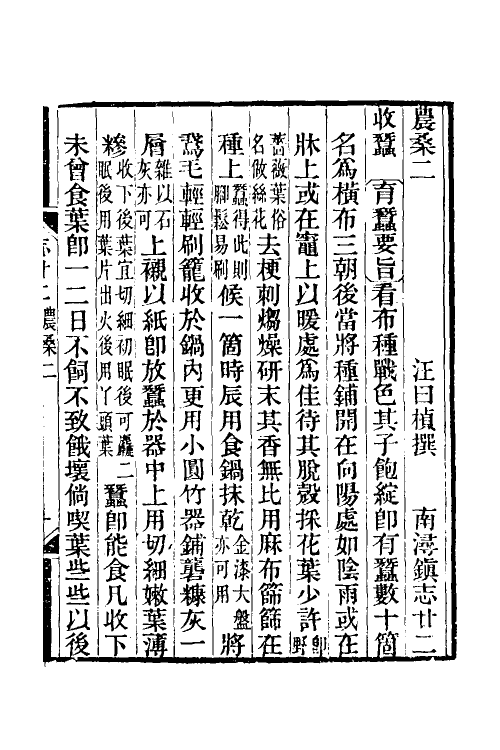 農桑二　汪曰楨撰　南潯鎮志廿二
收蠶　育蠶要旨看布種戰色其子飽綻卽有蠶數十箇
名爲橫布三朝後當將種鋪開在向陽處如陰雨或在
牀上或在竈上以暖處爲佳待其脫殼採花葉少許卽野
薔薇葉俗名做絲花去梗刺燐燥研末其香無比用麻布篩篩在
種上蠶得此則腳鬆易刷候一箇時辰用食鍋抹乾金漆大盤亦可用將
鵞毛輕輕刷籠收於鍋內時更用小圓竹器鋪礱糠灰一
層雜以石灰亦可上襯以紙卽放蠶於器中上用切細嫩葉薄
糝收下後葉宜切細初眠後可麤二眠後用葉片出火後用丫頭葉蠶卽能食凡收下
未曾食葉卽一二日不飼不致餓壞倘喫葉些些以後
志廿二 農桑二